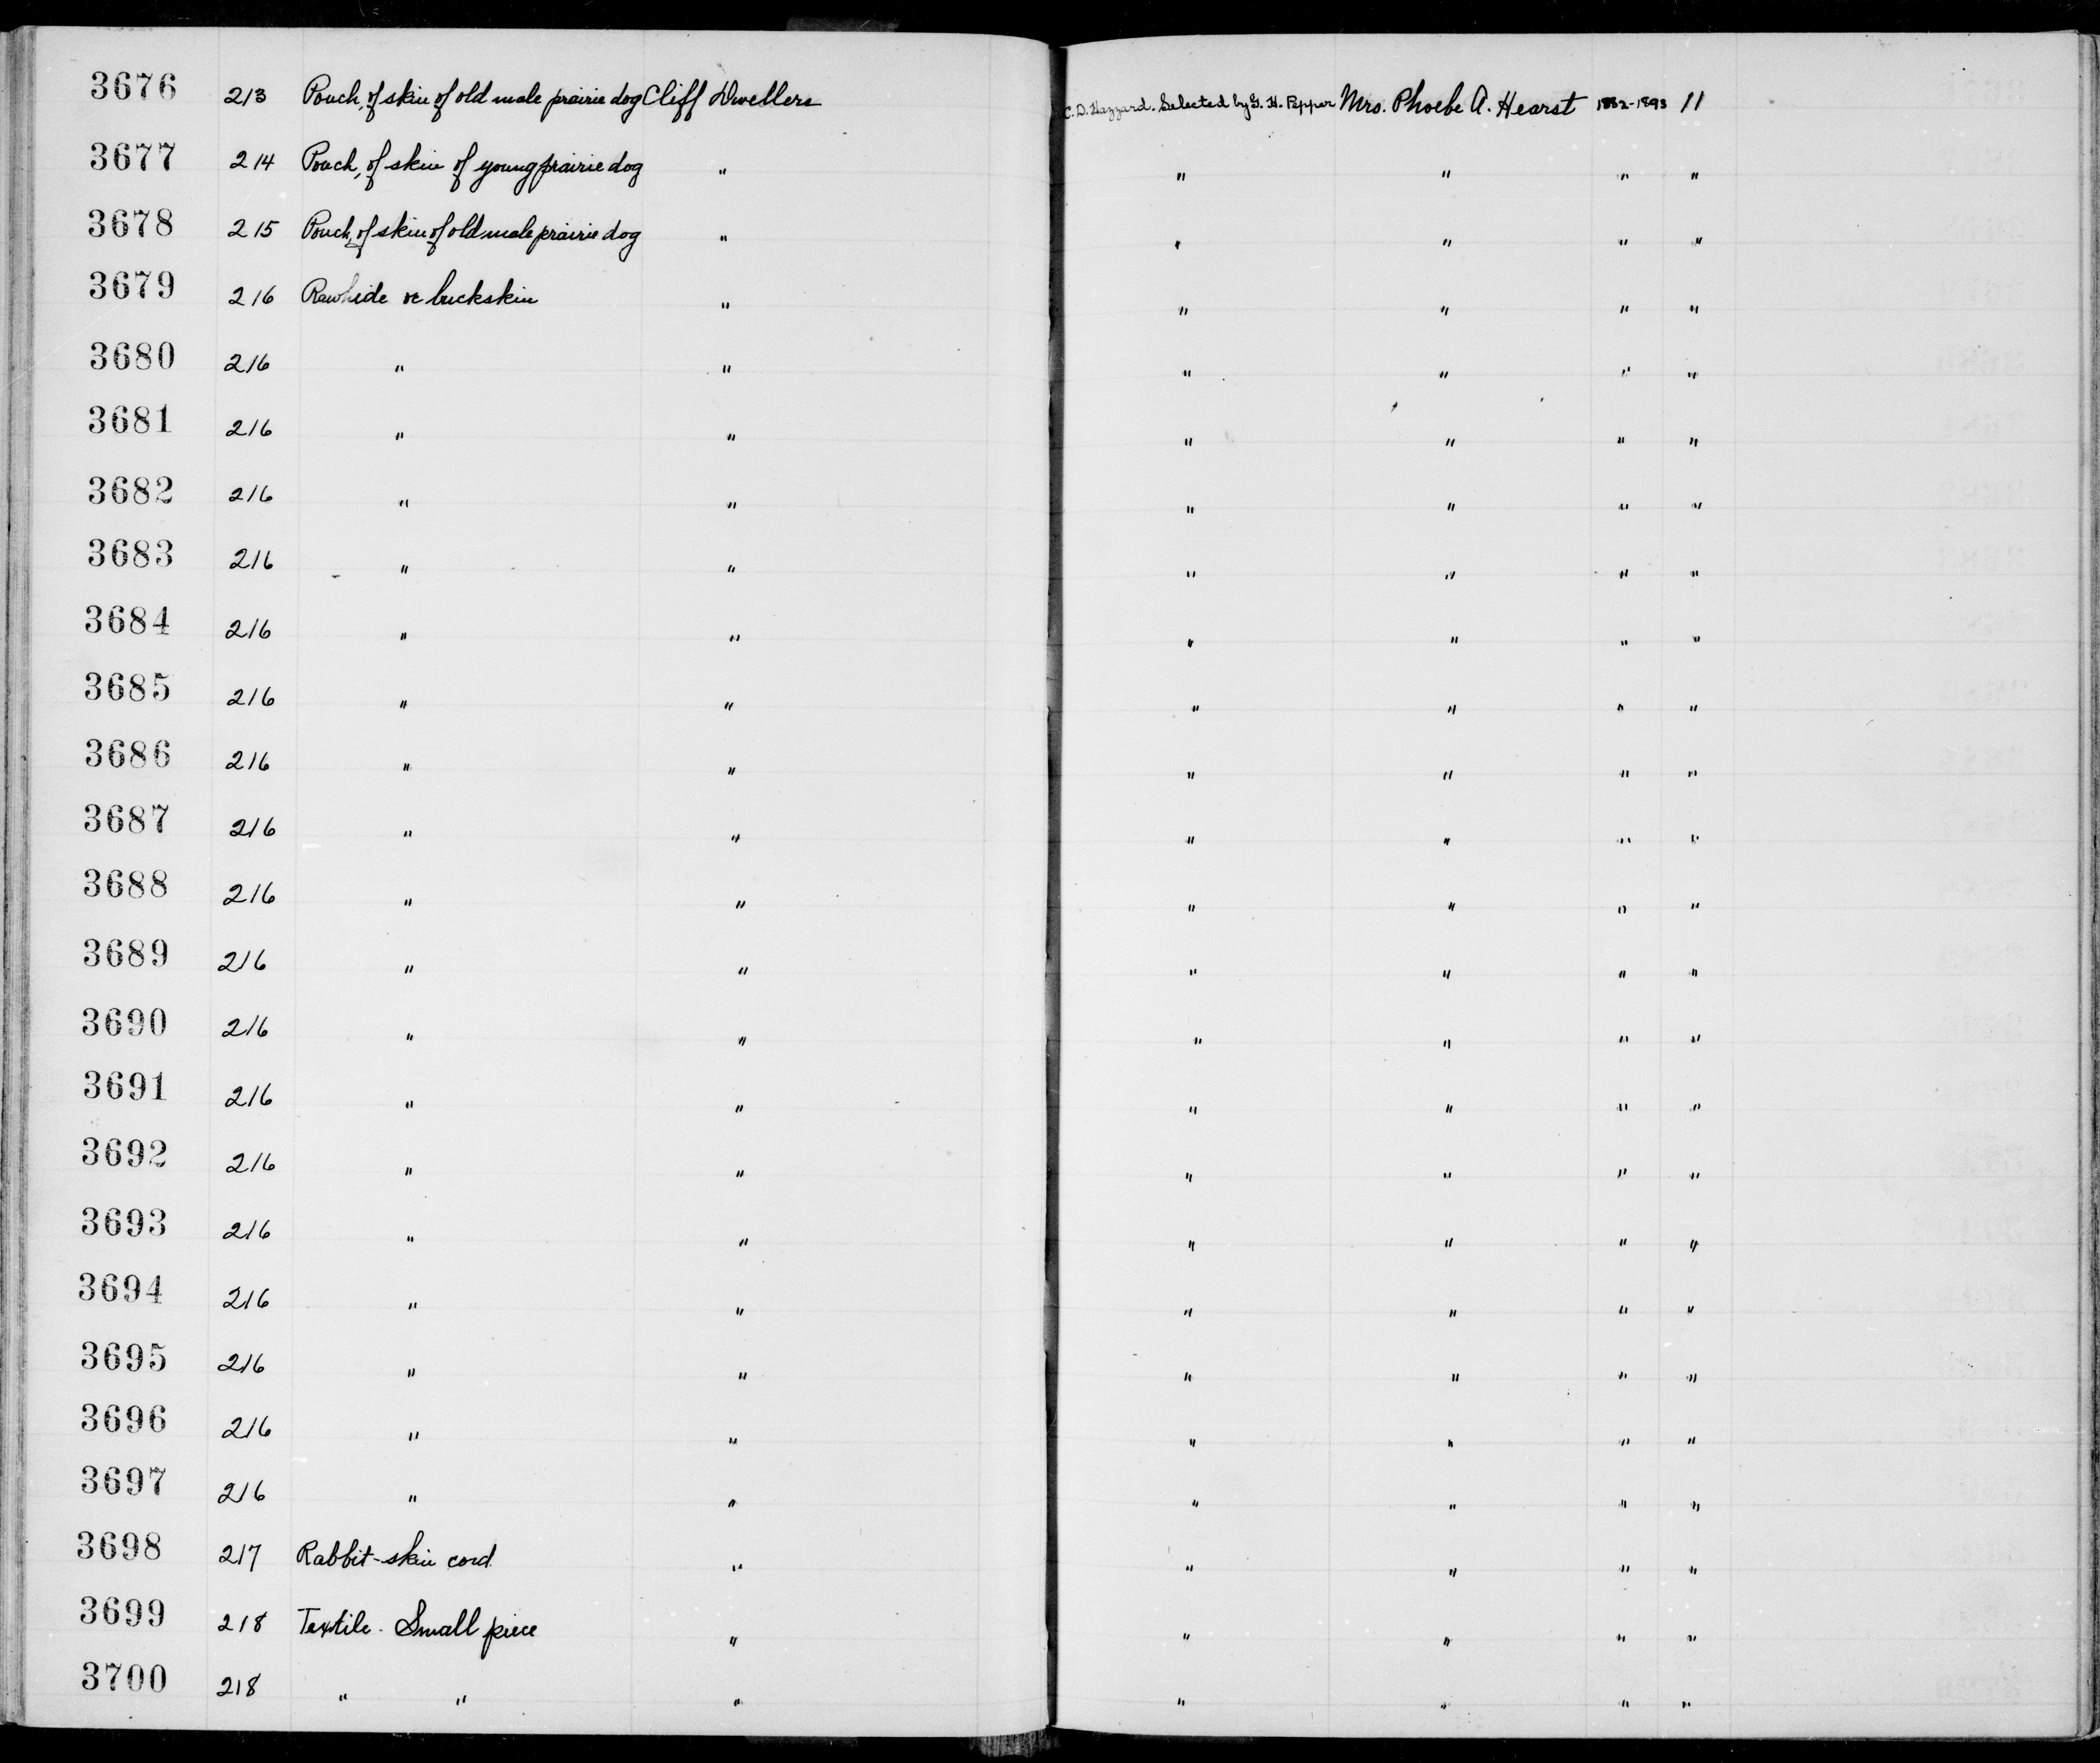 3676 213 Pouch, of skin of old male prairie dog Cliff Dwellers C. D. Hazzard. Selected by G. H. Pepper Mrs. Phoebe A. Hearst 1892-1893 11
3677 214 Pouch, of skin of young prairie dog " " " " "
3678 215 Pouch, of skin of old male prairie dog " " " " "
3679 216 Rawhide or buckskin " " " " "
3680 216 " " " " " "
3681 216 " " " " " "
3682 216 " " " " " "
3683 216 " " " " " "
3684 216 " " " " " "
3685 216 " " " " " "
3686 216 " " " " " "
3687 216 " " " " " "
3688 216 " " " " " "
3689 216 " " " " " "
3690 216 " " " " " "
3691 216 " " " " " "
3692 216 " " " " " "
3693 216 " " " " " "
3694 216 " " " " " "
3695 216 " " " " " "
3696 216 " " " " " "
3697 216 " " " " " "
3698 217 Rabbit-skin cord. " " " " "
3699 218 Textile - Small piece " " " " "
3700 218 " " " " " " "